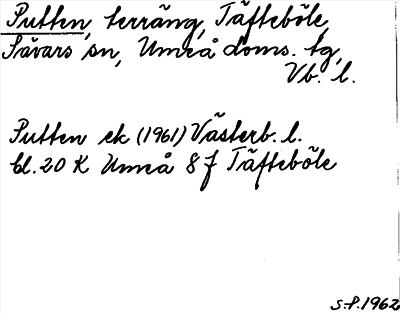 Putten, terräng, Täfteböle,
Sävars sn, Umeå doms. tg,
Vb. l.
Putten ek (1961) Västerb. l.
bl. 20 K Umeå 8 f Täfteböle
S-P. 1962